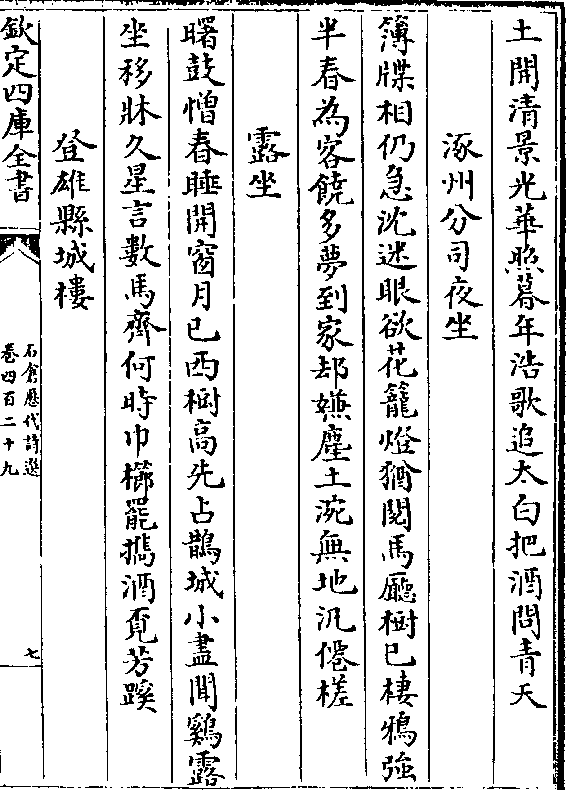 土開清景光華照暮年浩歌追太白把酒問青天
涿州分司夜坐
簿牒相仍急沈迷眼欲花籠燈猶閱馬廳樹已棲鴉強
半春為客饒多夢到家却嫌塵土涴無地汎僊槎
露坐
曙鼓憎春睡開窗月已西樹高先占鵲城小盡聞鷄露
坐移牀久星言數馬齊何時巾櫛罷攜酒覔芳蹊
登雄縣城樓
欽定四庫全書
石倉歷代詩選
卷四百二十九
七